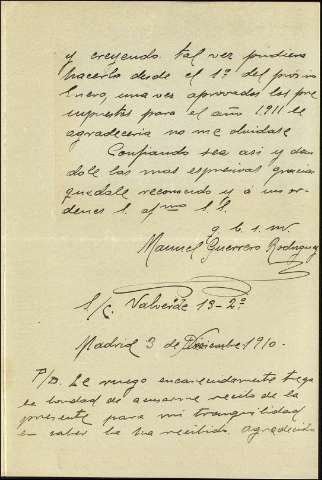 y creyendo tal vez pudiera
hacerlo desde el 1º del proximo
Enero, una vez aprovados los pre
supuestos para el año 1.911 le
agradeceria no me olvidase
Confiando sea asi y dan
dole las mas espresivas gracias
quedale reconocido y á sus or-
denes s. afmo s. s.
q. b. s. m.
Manuel Guerrero Rodriguez
S/c. Valverde 13-2º
Madrid 3 de Diciembre 1910.
P/D. Le ruego encarecidamente tenga
la bondad de acusarme recibo de la
presente para mi tranquilidad
en saber la ha recibido. agradecido